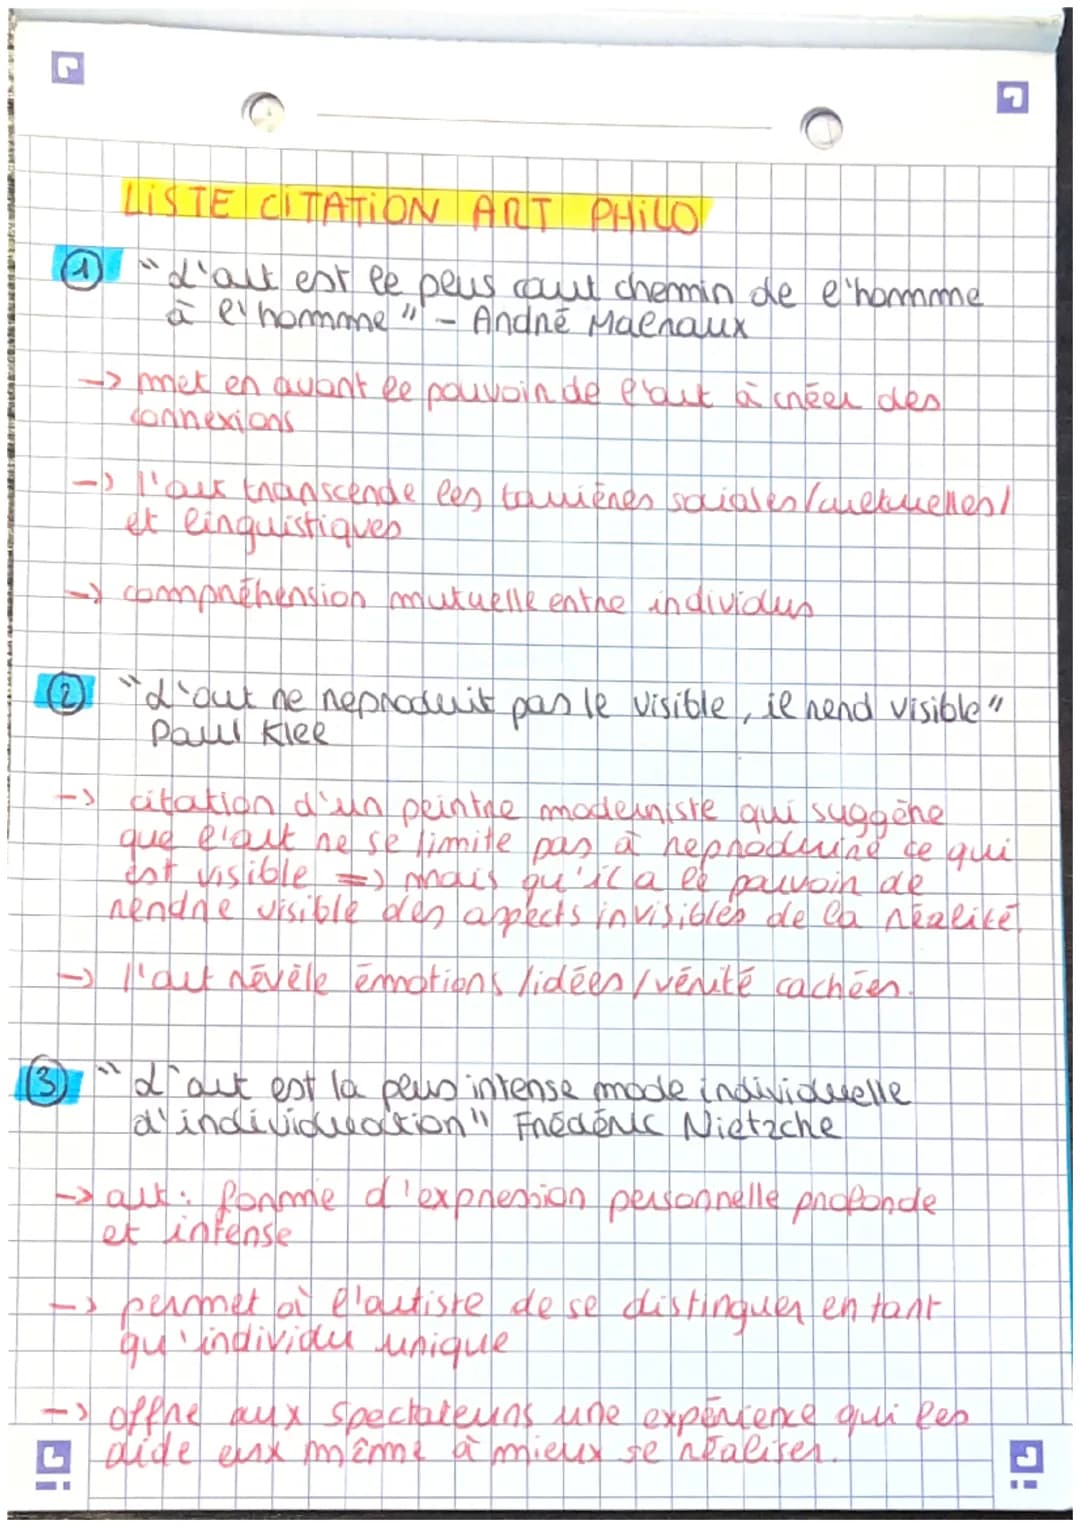 LISTE CITATION ART PHILO
① "L'art est le plus court chemin de l'homme
à l'homme" - André Malraux
-> met en avant le pouvoir de l'art à créer des
connexions
-> l'art transcende les barrières sociales/culturelles/
et linguistiques
-> compréhension mutuelle entre individus
② "L'art ne reproduit pas le visible, il rend visible"
Paul Klee
-> citation d'un peintre moderniste qui suggère
que l'art ne se limite pas à reproduire ce qui
est visible => mais qu'il a le pouvoir de
rendre visible des aspects invisibles de la réalité.
-> l'art révèle émotions/idées/vérité cachées.
③ "L'art est la plus intense mode individuelle
d'individuation" Frédéric Nietzche
-> art : forme d'expression personnelle profonde
et intense
-> permet à l'artiste de se distinguer en tant
qu'individu unique
-> offre aux spectateurs une expérience qui les
aide eux même à mieux se réaliser.